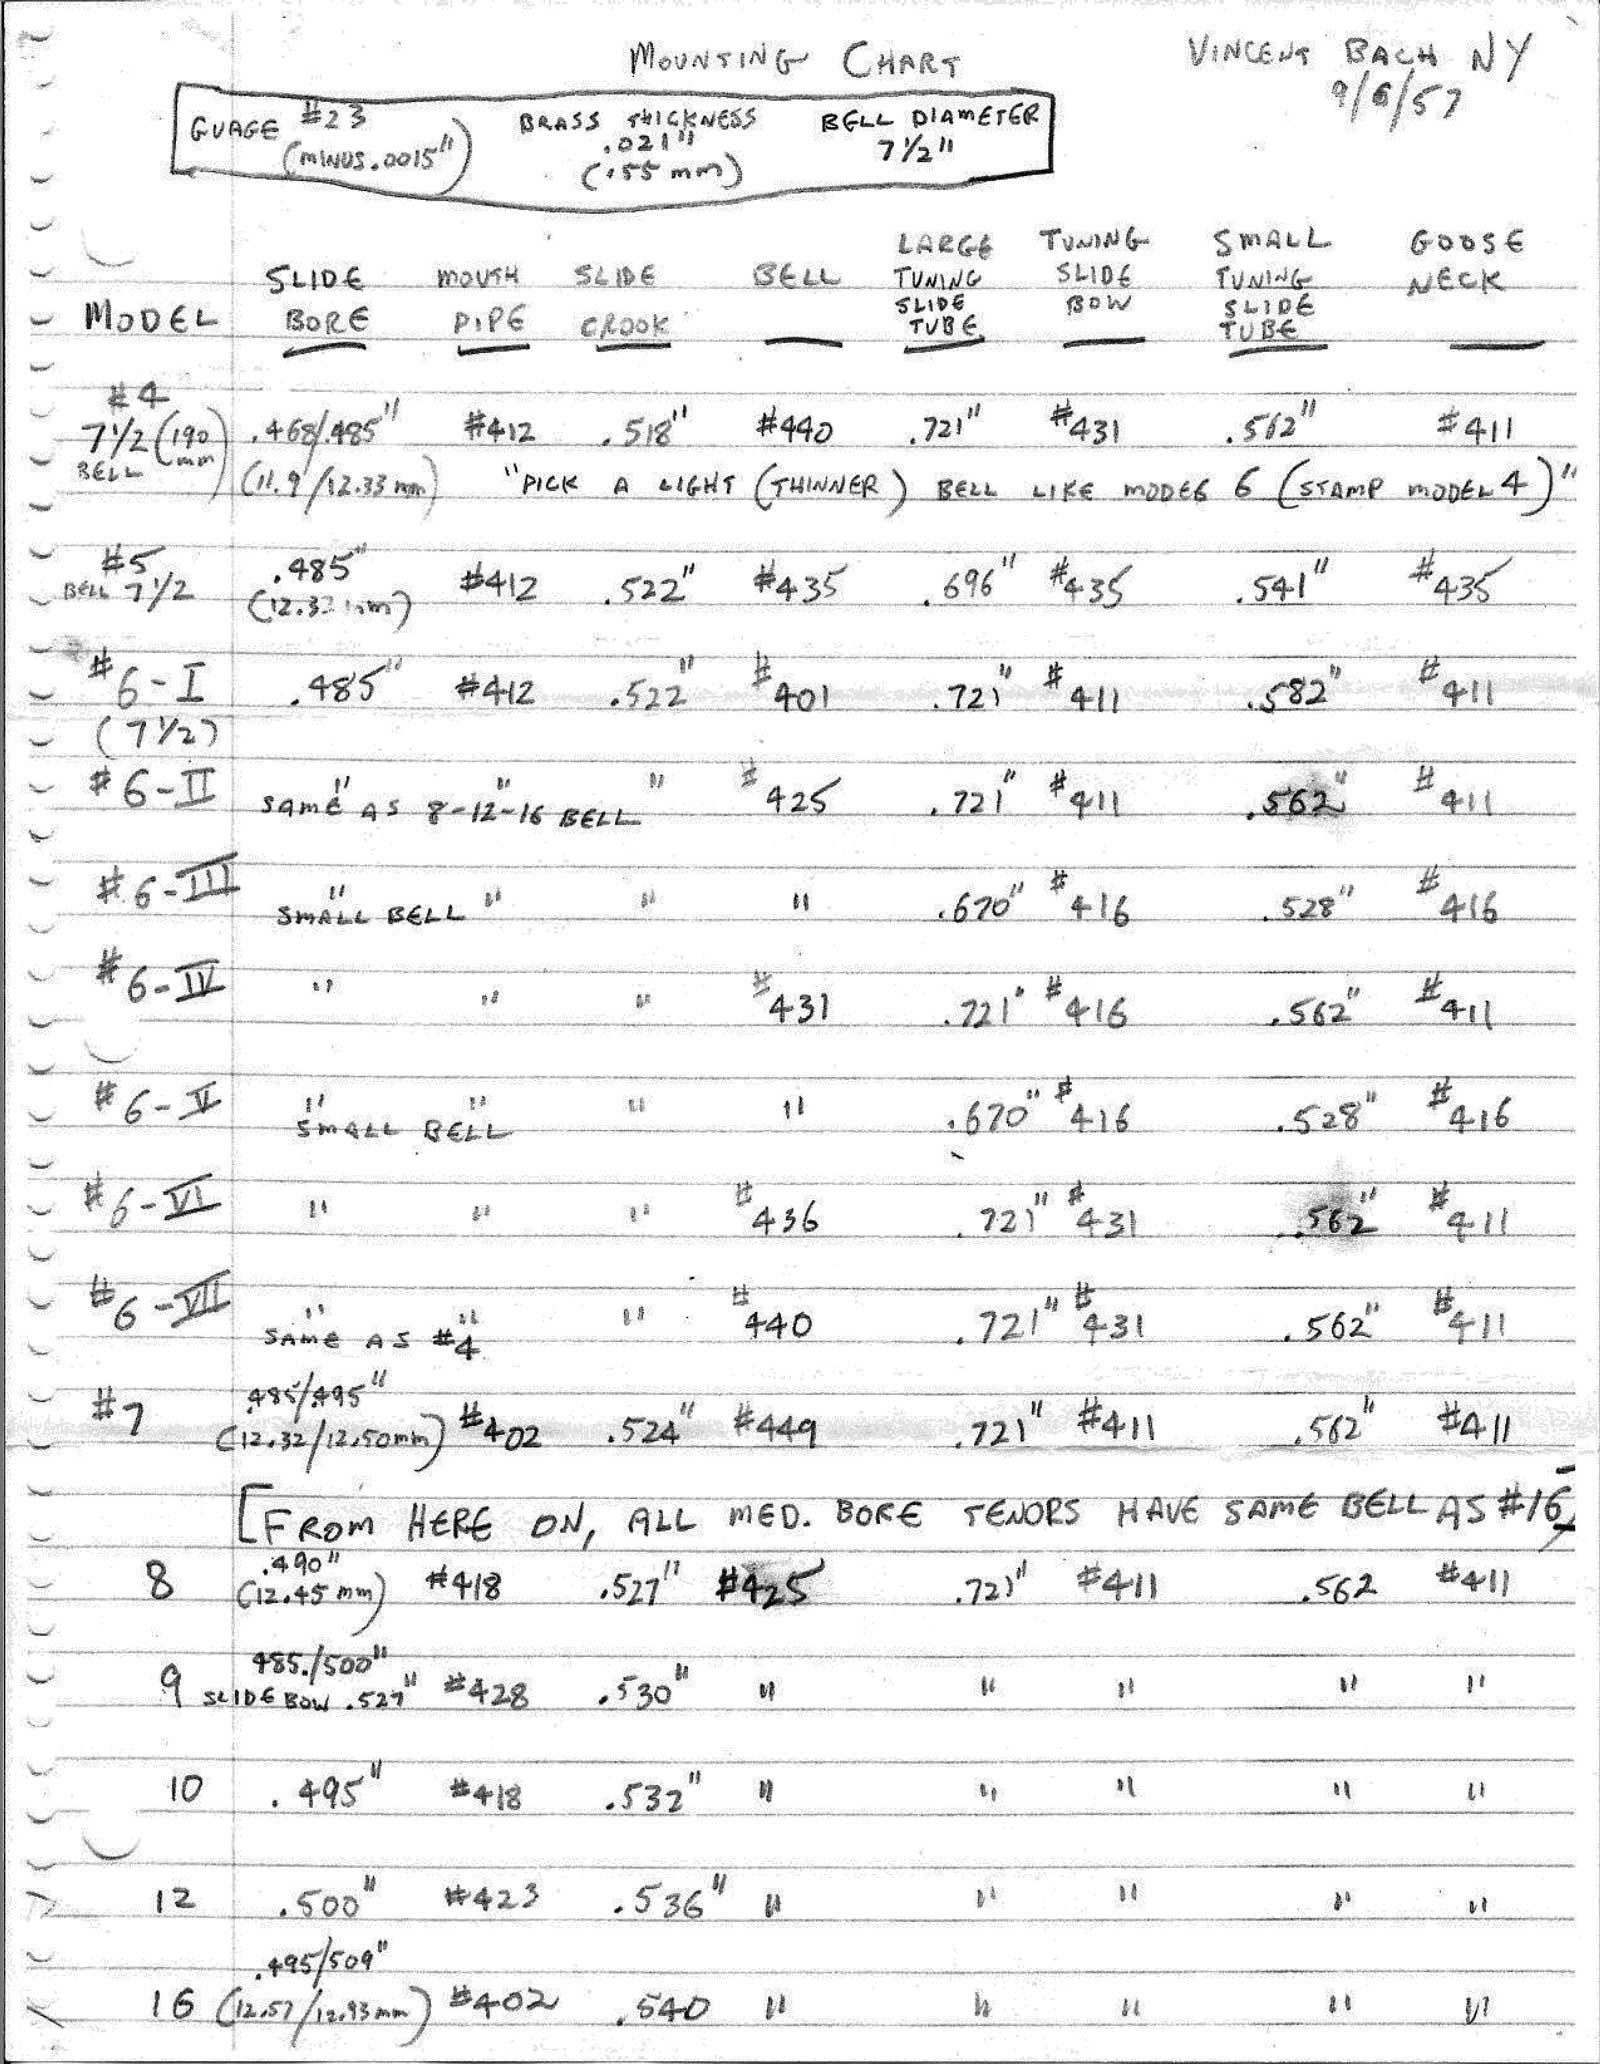 MOUNTING CHART
VINCENT BACH NY
9/6/57
GUAGE #23 (MINUS .0015") BRASS THICKNESS .021" (.55 mm) BELL DIAMETER 7 1/2"
MODEL SLIDE BORE MOUTH PIPE SLIDE CROOK BELL LARGE TUNING SLIDE TUBE TUNING SLIDE BOW SMALL TUNING SLIDE TUBE GOOSE NECK
#4
7 1/2 (190 mm) BELL .468/.485" #412 .518" #440 .721" #431 .562" #411
(11.9/12.33 mm) "PICK A LIGHT (THINNER) BELL LIKE MODEL 6 (STAMP MODEL 4)"
#5 .485"
BELL 7 1/2 (12.32 mm) #412 .522" #435 .696" #435 .541" #435
#6-I .485" #412 .522" #401 .721" #411 .582" #411
(7 1/2)
#6-II " " " #425 .721" #411 .562" #411
SAME AS 8-12-16 BELL
#6-III " " " " .670" #416 .528" #416
SMALL BELL
#6-IV " " " #431 .721" #416 .562" #411
#6-V " " " " .670" #416 .528" #416
SMALL BELL
#6-VI " " " #436 .721" #431 .562" #411
#6-VII " " " #440 .721" #431 .562" #411
SAME AS #4
#7 .485/.495" #402 .524" #449 .721" #411 .562" #411
(12.32/12.50mm)
[FROM HERE ON, ALL MED. BORE TENORS HAVE SAME BELL AS #16]
8 .490" #418 .527" #425 .721" #411 .562 #411
(12.45 mm)
9 485./500" #428 .530" " " " " "
SLIDE BOW .527"
10 .495" #418 .532" " " " " "
12 .500" #423 .536" " " " " "
.495/509"
16 (12.57/12.93mm) #402 .540 " " " " "